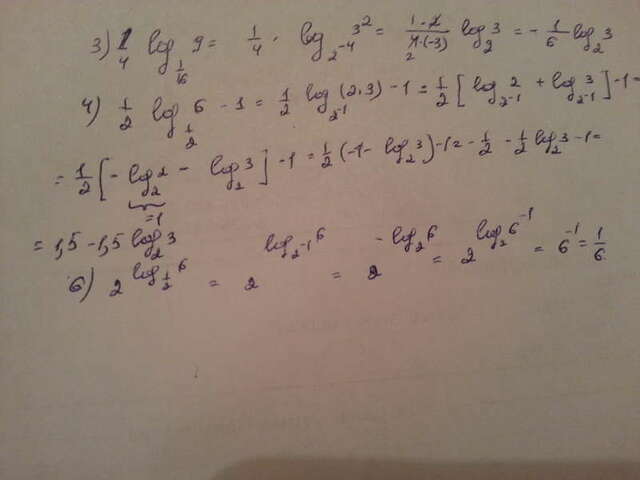 3) 1/4 log_{1/16} 9 = 1/4 · log_{2^{-4}} 3^2 = 1·2/4·(-3) log_2 3 = - 1/6 log_2 3
4) 1/2 log_{1/2} 6 - 1 = 1/2 log_{2^{-1}} (2·3) - 1 = 1/2 [ log_{2^{-1}} 2 + log_{2^{-1}} 3 ] - 1 =
= 1/2 [ - log_2 2 - log_2 3 ] - 1 = 1/2 (-1 - log_2 3) - 1 = - 1/2 - 1/2 log_2 3 - 1 =
=1
= 1,5 - 1,5 log_2 3
6) 2^{log_{1/2} 6} = 2^{log_{2^{-1}} 6} = 2^{-log_2 6} = 2^{log_2 6^{-1}} = 6^{-1} = 1/6